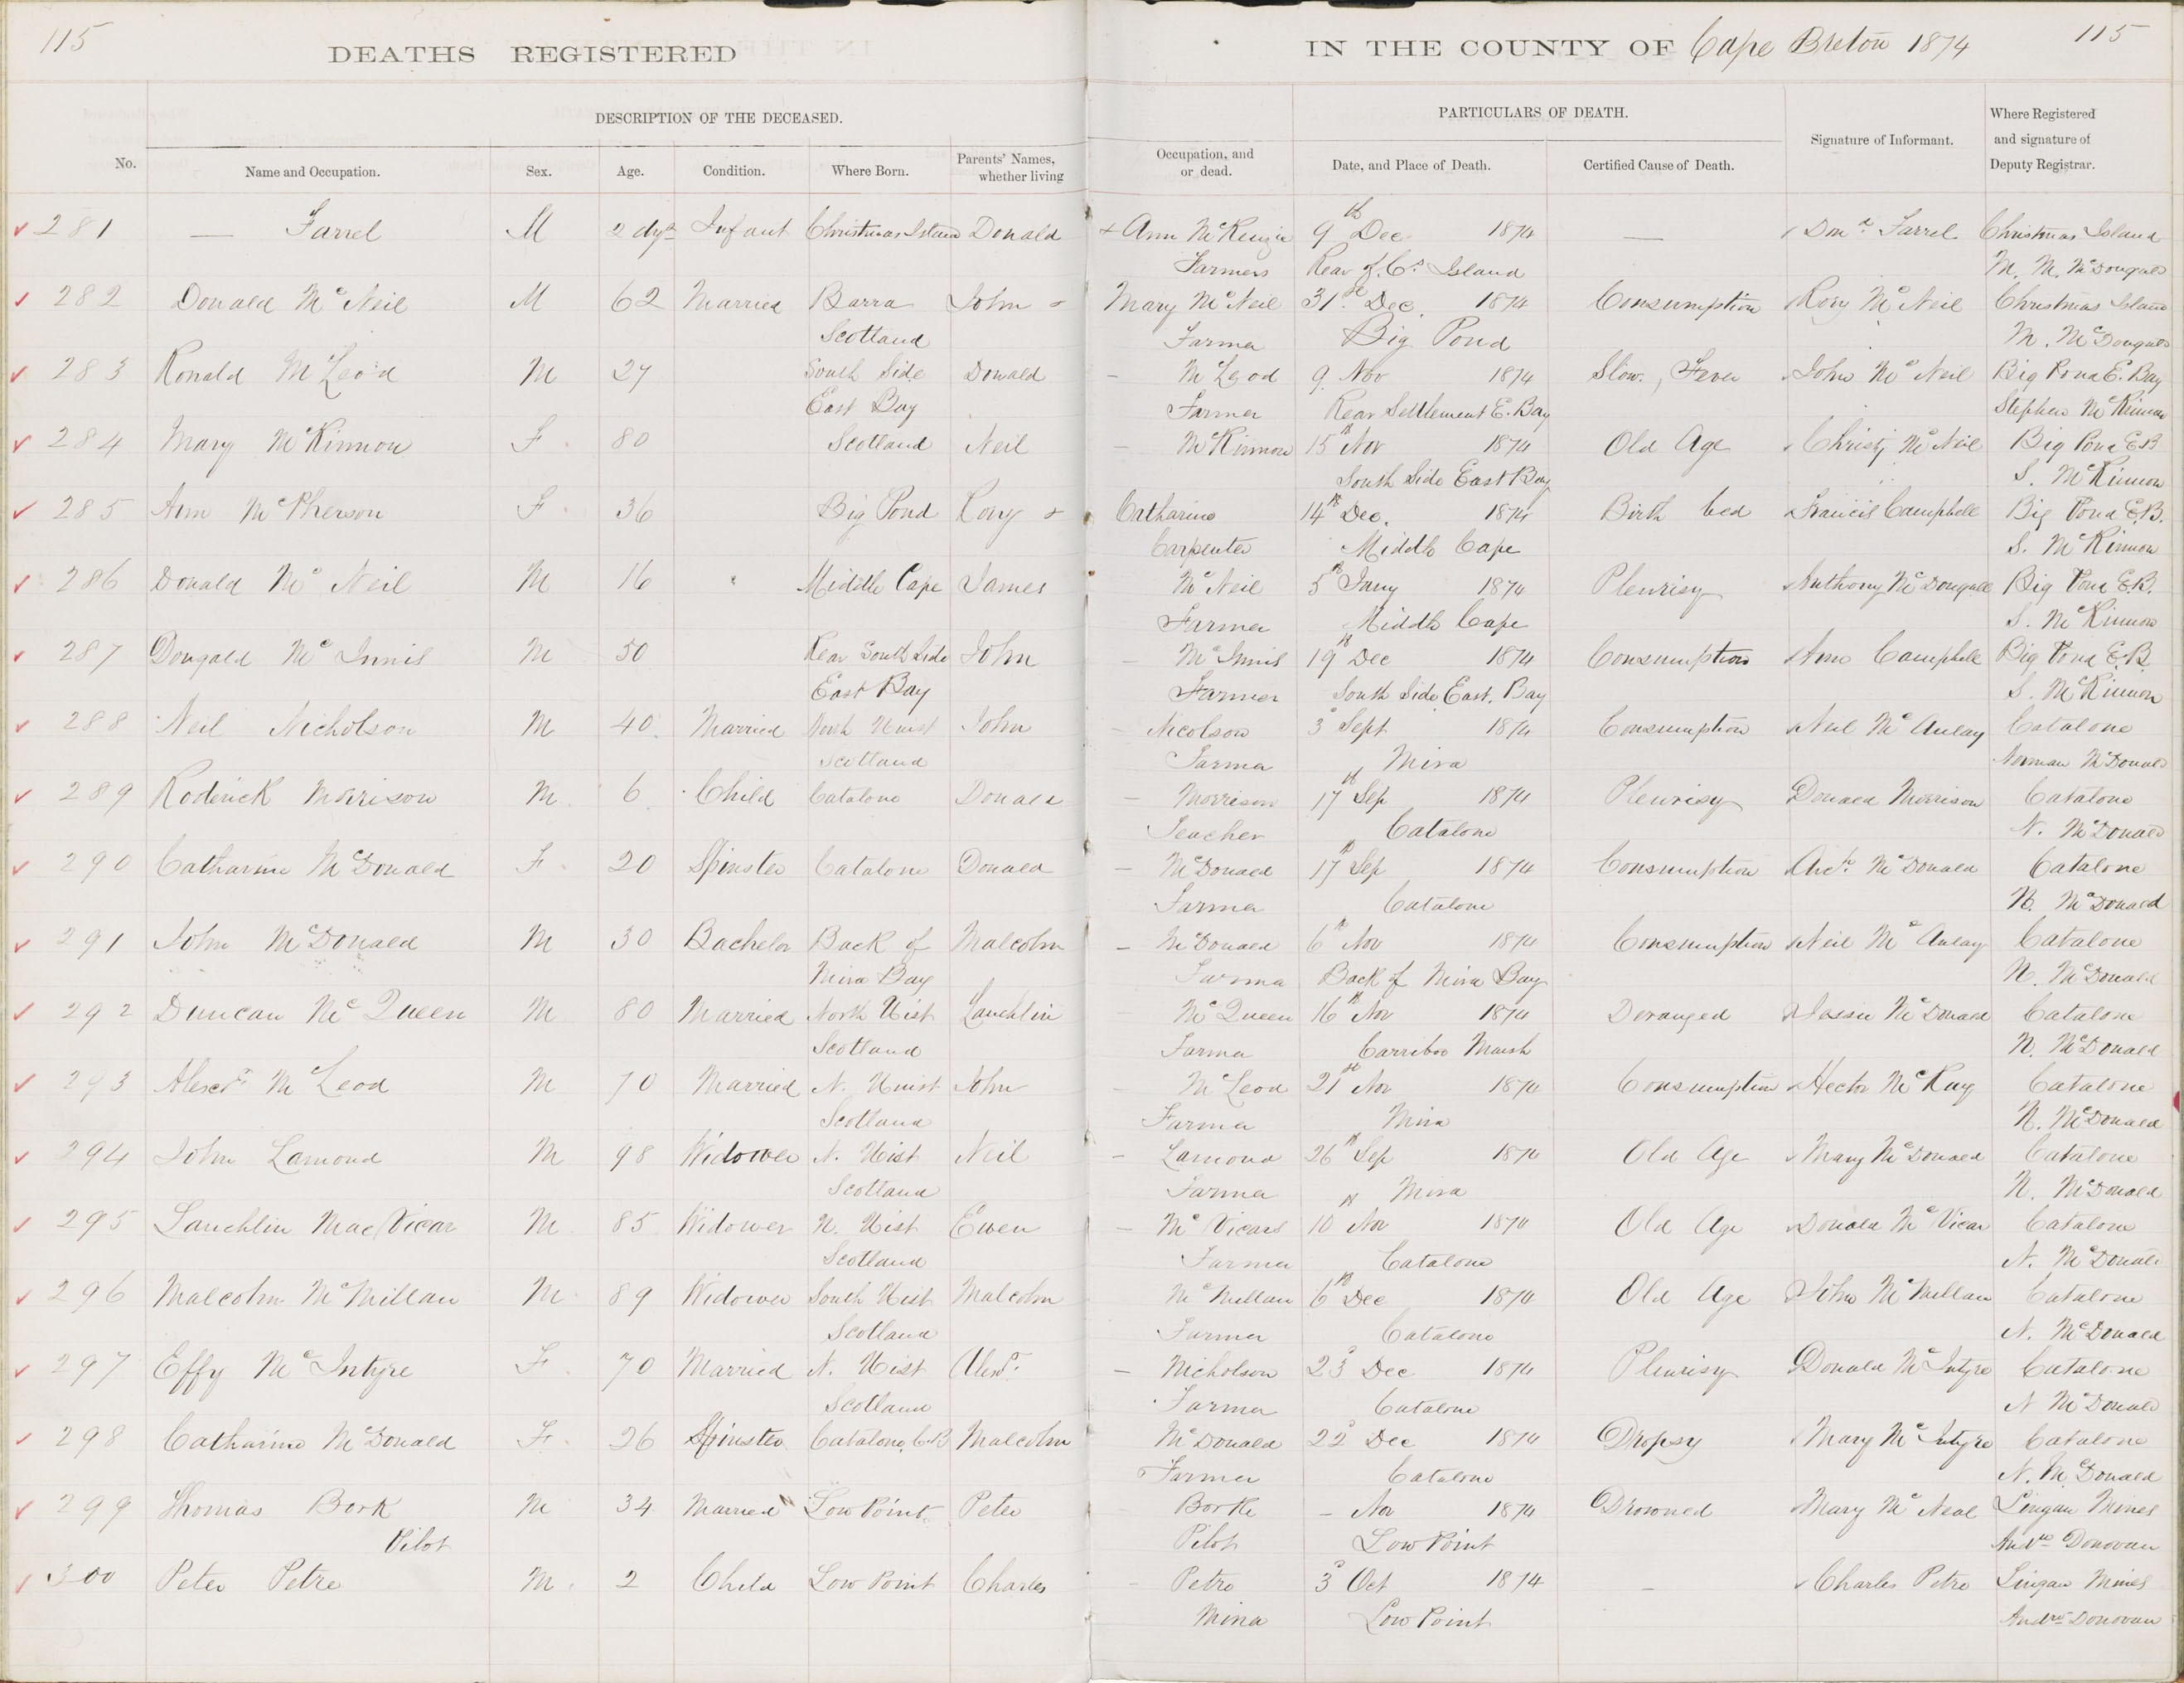 115
DEATHS REGISTERED
IN THE COUNTY OF Cape Breton 1874
115
DESCRIPTION OF THE DECEASED.
PARTICULARS OF DEATH.
No.
Name and Occupation.
Sex.
Age.
Condition.
Where Born.
Parents' Names, whether living
Occupation, and or dead.
Date, and Place of Death.
Certified Cause of Death.
Signature of Informant.
Where Registered and signature of Deputy Registrar.
281 — Farrel M 2 dys Infant Christmas Island Donald + Ann McKenzie 9th Dec 1874 — Dond Farrel Christmas Island
Farmers Rear of Cs Island M. M. McDougald
282 Donald Mc Neil M 62 Married Barra John + Mary McNeil 31st Dec. 1874 Consumption Rory Mc Neil Christmas Island
Scotland Farmer Big Pond M. McDougald
283 Ronald McLeod M 27 South Side Donald — McLeod 9 Nov 1874 Slow Fever John Mc Neil Big Pond E. Bay
East Bay Farmer Rear Settlement E. Bay Stephen McKinnon
284 Mary McKinnon F 80 Scotland Neil — McKinnon 15th Nov 1874 Old Age Christy McNeil Big Pond E.B
South Side East Bay S. McKinnon
285 Ann McPherson F 36 Big Pond Rory + Catharine 14th Dec. 1874 Birth bed Francis Campbell Big Pond E.B.
Carpenter Middle Cape S. McKinnon
286 Donald Mc Neil M 16 Middle Cape James McNeil 5th Jany 1874 Pleurisy Anthony McDougall Big Pond E.B.
Farmer Middle Cape S. McKinnon
287 Dougald Mc Innis M 50 Rear South Side John — McInnis 19th Dec 1874 Consumption Ann Campbell Big Pond E.B.
East Bay Farmer South Side East Bay S. McKinnon
288 Neil Nicholson M 40 Married North Uist John — Nicolson 3d Sept 1874 Consumption Neil McAulay Catalone
Scotland Farmer Mira Norman McDonald
289 Roderick Morrison M 6 Child Catalone Donald — Morrison 17th Sep 1874 Pleurisy Donald Morrison Catalone
Teacher Catalone N. McDonald
290 Catharine McDonald F 20 Spinster Catalone Donald — McDonald 17th Sep 1874 Consumption Archd McDonald Catalone
Farmer Catalone N. McDonald
291 John McDonald M 30 Bachelor Back of Malcolm — McDonald 6th Nov 1874 Consumption Neil McAulay Catalone
Mira Bay Farmer Back of Mira Bay N. McDonald
292 Duncan McQueen M 80 Married North Uist Lauchlin McQueen 16th Nov 1874 Deranged Jessie McDonald Catalone
Scotland Farmer Carriboo Marsh N. McDonald
293 Alexr McLeod M 70 Married N. Uist John McLeod 21st Nov 1874 Consumption Hector McKay Catalone
Scotland Farmer Mira N. McDonald
294 John Lamond M 98 Widower N. Uist Neil — Lamond 26th Sep 1874 Old Age Mary McDonald Catalone
Scotland Farmer Mira N. McDonald
295 Lauchlin MacVicar M 85 Widower N. Uist Ewen — McVicar 10th Nov 1874 Old Age Donald McVicar Catalone
Scotland Farmer Catalone N. McDonald
296 Malcolm McMillan M 89 Widower South Uist Malcolm McMillan 6th Dec 1874 Old Age John McMillan Catalone
Scotland Farmer Catalone N. McDonald
297 Effy McIntyre F 70 Married N. Uist Alexr — Nicholson 23d Dec 1874 Pleurisy Donald McIntyre Catalone
Scotland Farmer Catalone N McDonald
298 Catharine McDonald F 26 Spinster Catalone, C.B Malcolm McDonald 22d Dec 1874 Dropsy Mary McIntyre Catalone
Farmer Catalone N. McDonald
299 Thomas Bork M 34 Married Low Point Peter — Borke — Nov 1874 Drowned Mary McNeal Lingan Mines
Pilot Pilot Low Point Andw Donovan
300 Peter Petre M 2 Child Low Point Charles — Petre 3d Oct 1874 — Charles Petre Lingan Mines
Miner Low Point Andw Donovan